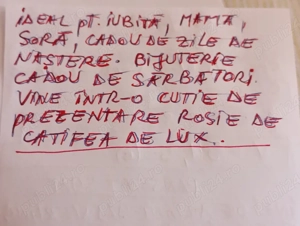 IDEAL PT. IUBITĂ, MAMĂ,
SORĂ, CADOU DE ZILE DE
NAȘTERE. BIJUTERIE
CADOU DE SĂRBĂTORI.
VINE ÎNTR-O CUTIE DE
PREZENTARE ROȘIE DE
CATIFEA DE LUX.